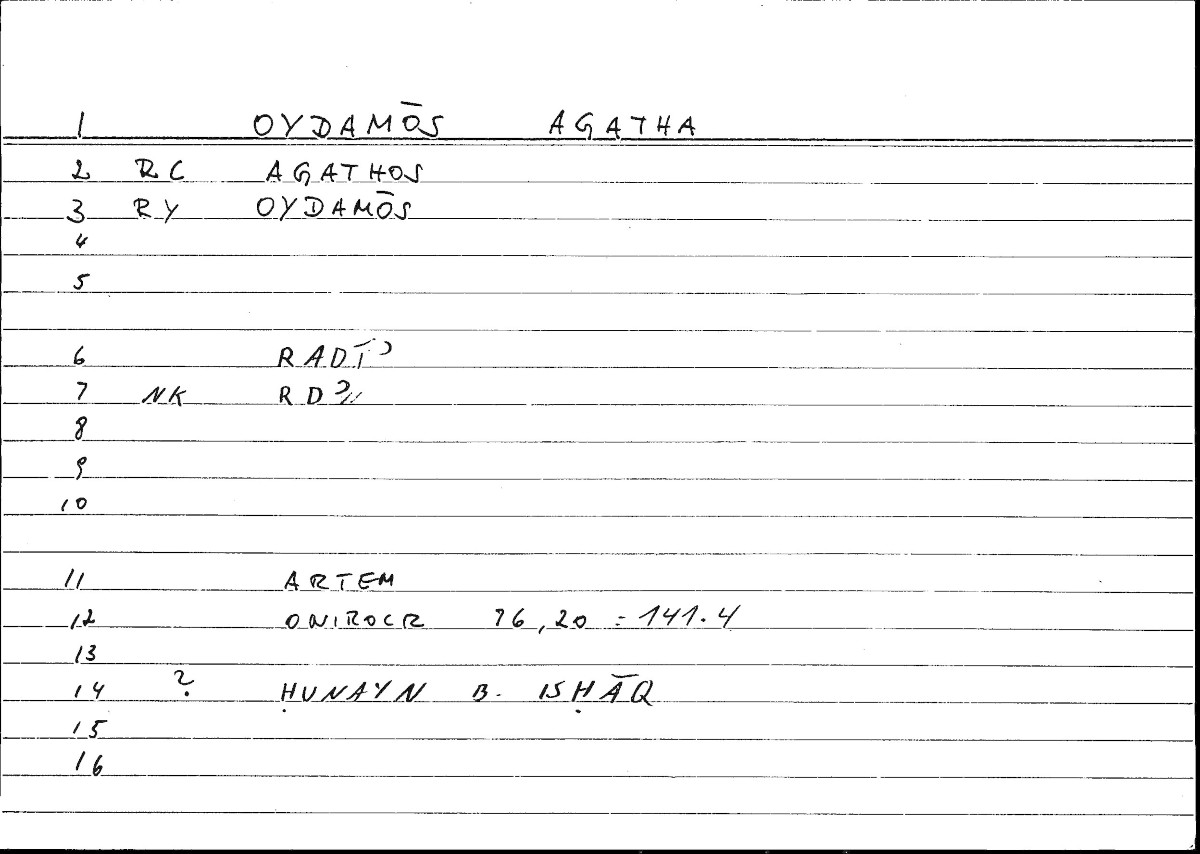 1 OYDAMŌS AGATHA
2 RC AGATHOS
3 RY OYDAMŌS
4
5
6 RADĪʾ
7 NK RDʾ//
8
9
10
11 ARTEM
12 ONIROCR 76,20 = 141.4
13
14 ? ḤUNAYN B. ISḤĀQ
15
16